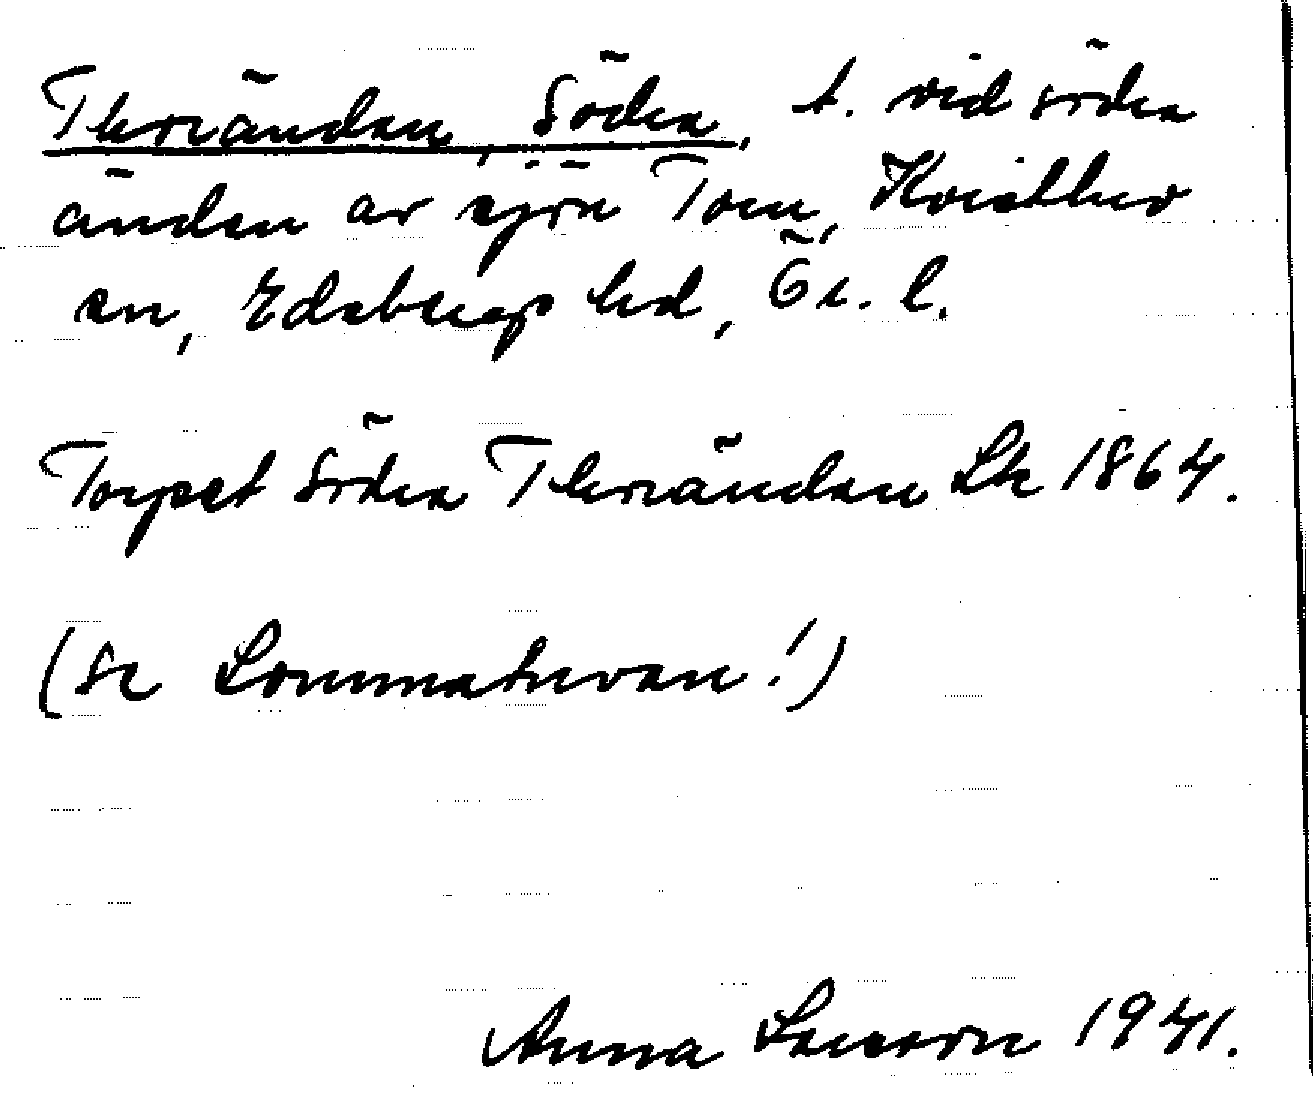 Thorsändan, Södra, t. vid södra
änden av sjön Tom, Kvistbro
sn, Edsbergs hd, Ör. l.
Torpet Södra Thorsändan Lk 1864.
(Se Lommaturvan!)
Anna Larsson 1941.